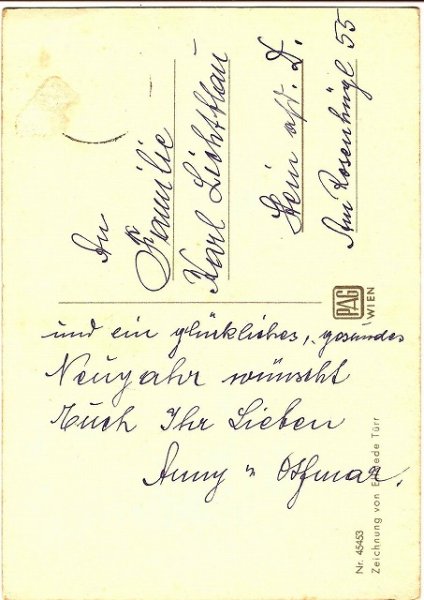 An
Familie
Karl Lichtblau
Stein a/d. D.
Am Rosenhügl 55
PAG
WIEN
und ein glückliches, gesundes
Neujahr wünscht
Euch Ihr Lieben
Anny u Othmar.
Nr. 45453
Zeichnung von Türr